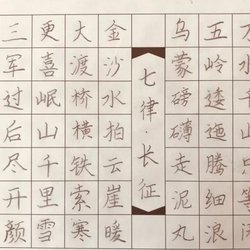 万水千山只等闲
五岭逶迤腾细浪
乌蒙磅礴走泥丸
七律·长征
金沙水拍云崖暖
大渡桥横铁索寒
更喜岷山千里雪
三军过后尽开颜